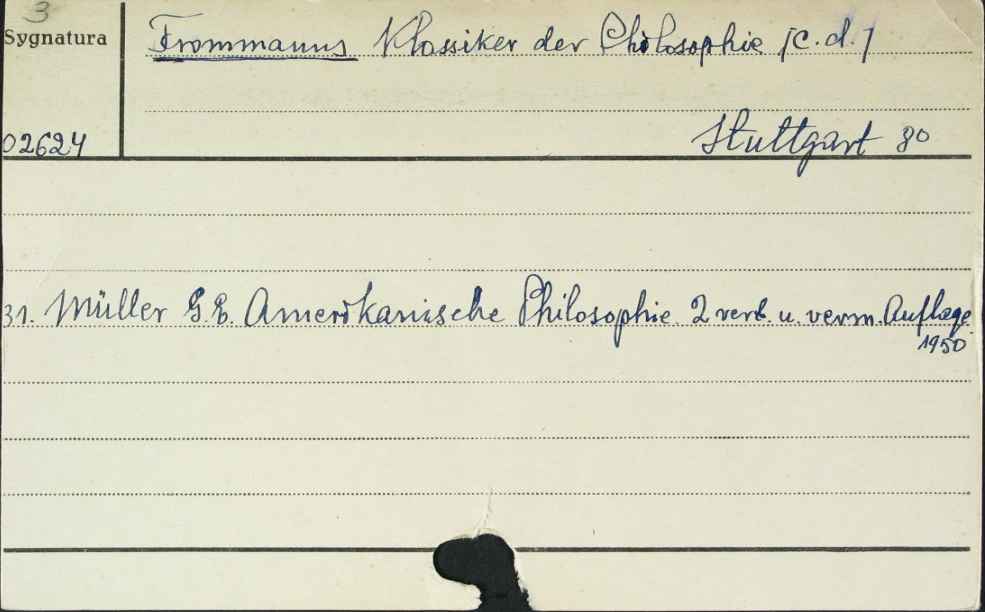 3
Sygnatura
Frommanns Klassiker der Philosophie /c.d./
02624
Stuttgart 8°
31. Müller G.E. Amerikanische Philosophie. 2 verb. u. verm. Auflage.
1950